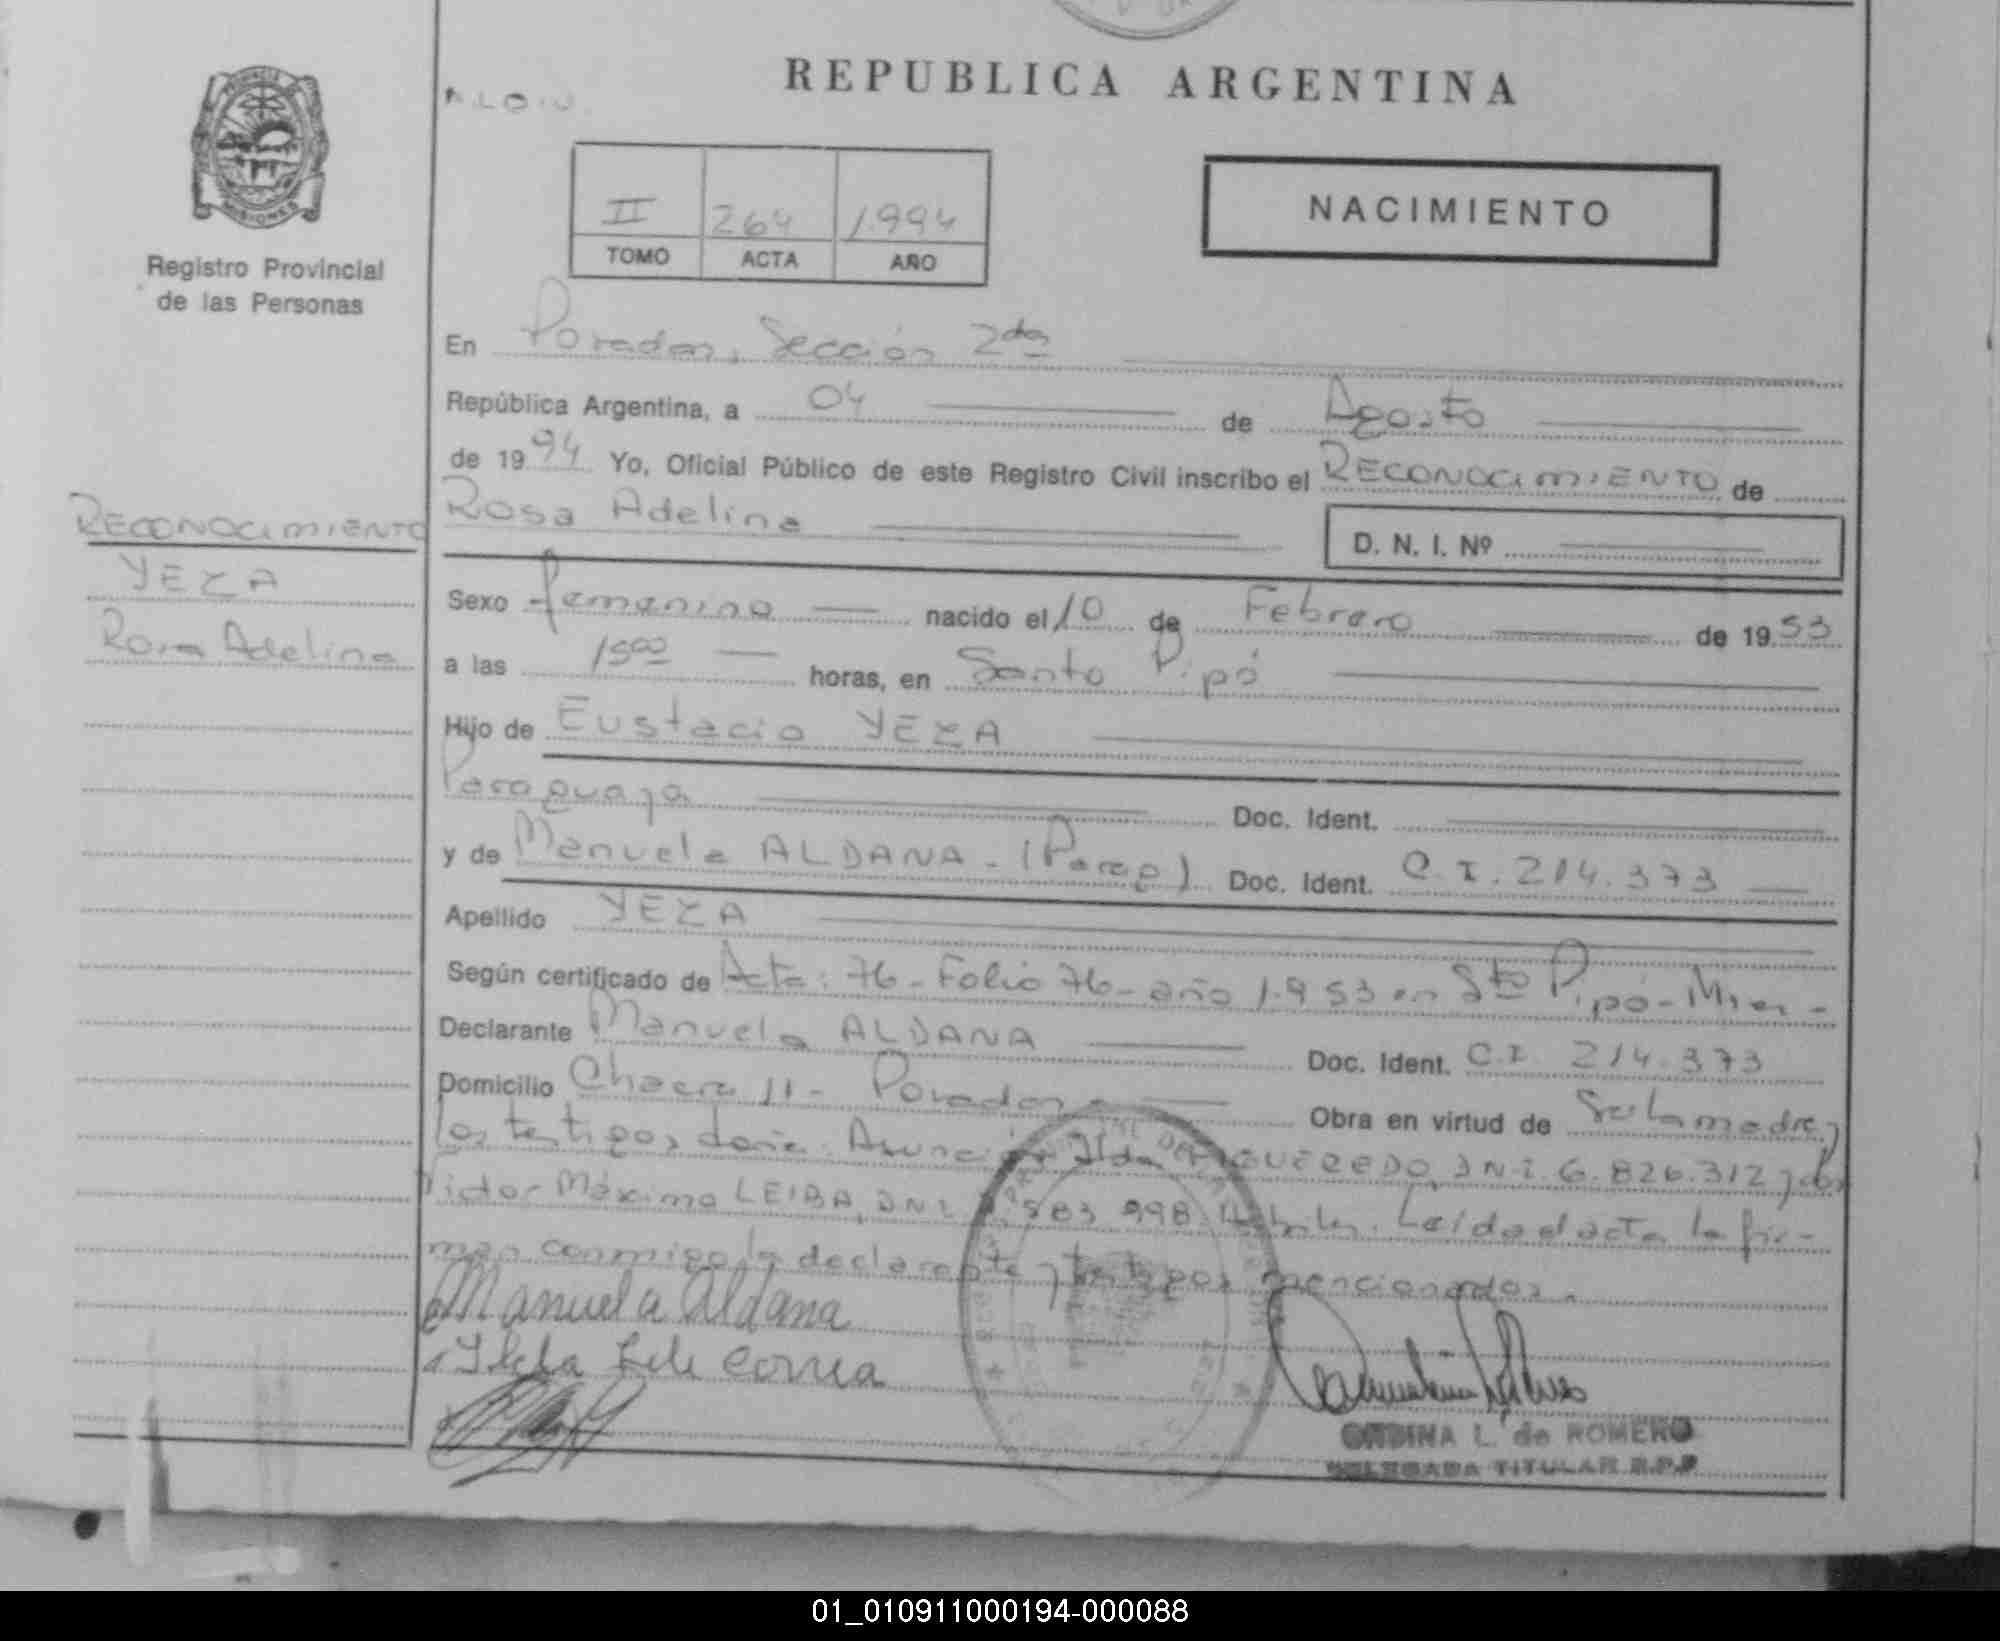 REPUBLICA ARGENTINA
PROVINCIA DE MISIONES
Registro Provincial
de las Personas
II 264 1.994
TOMO ACTA AÑO
NACIMIENTO
En Posadas, Sección 2da
República Argentina, a 04 de Agosto
de 1994 Yo, Oficial Público de este Registro Civil inscribo el RECONOCIMIENTO de
Rosa Adelina D. N. I. Nº
RECONOCIMIENTO
YEZA
Rosa Adelina
Sexo femenino nacido el 10 de Febrero de 1953
a las 1500 horas, en Santo Pipó
Hijo de Eustacio YEZA
Paraguaya Doc. Ident.
y de Manuela ALDANA - (Parag) Doc. Ident. C.I. 214.373
Apellido YEZA
Según certificado de Acta: 76 - Folio 76 - año 1.953 en Sto Pipó - Mnes -
Declarante Manuela ALDANA Doc. Ident. C.I. 214.373
Domicilio Chacra 11 - Posadas - Obra en virtud de ser la madre y
los testigos doña: Asunción Ilda FIGUEREDO, DNI. 6.826.312 y don
Victor Máximo LEIBA, DNI 583.998. Habiles. Leida el acta la fir-
man conmigo la declarante y testigos mencionados.
Manuela Aldana
Correa
L. de ROMERO
DELEGADA TITULAR R.P.P.
01_010911000194-000088